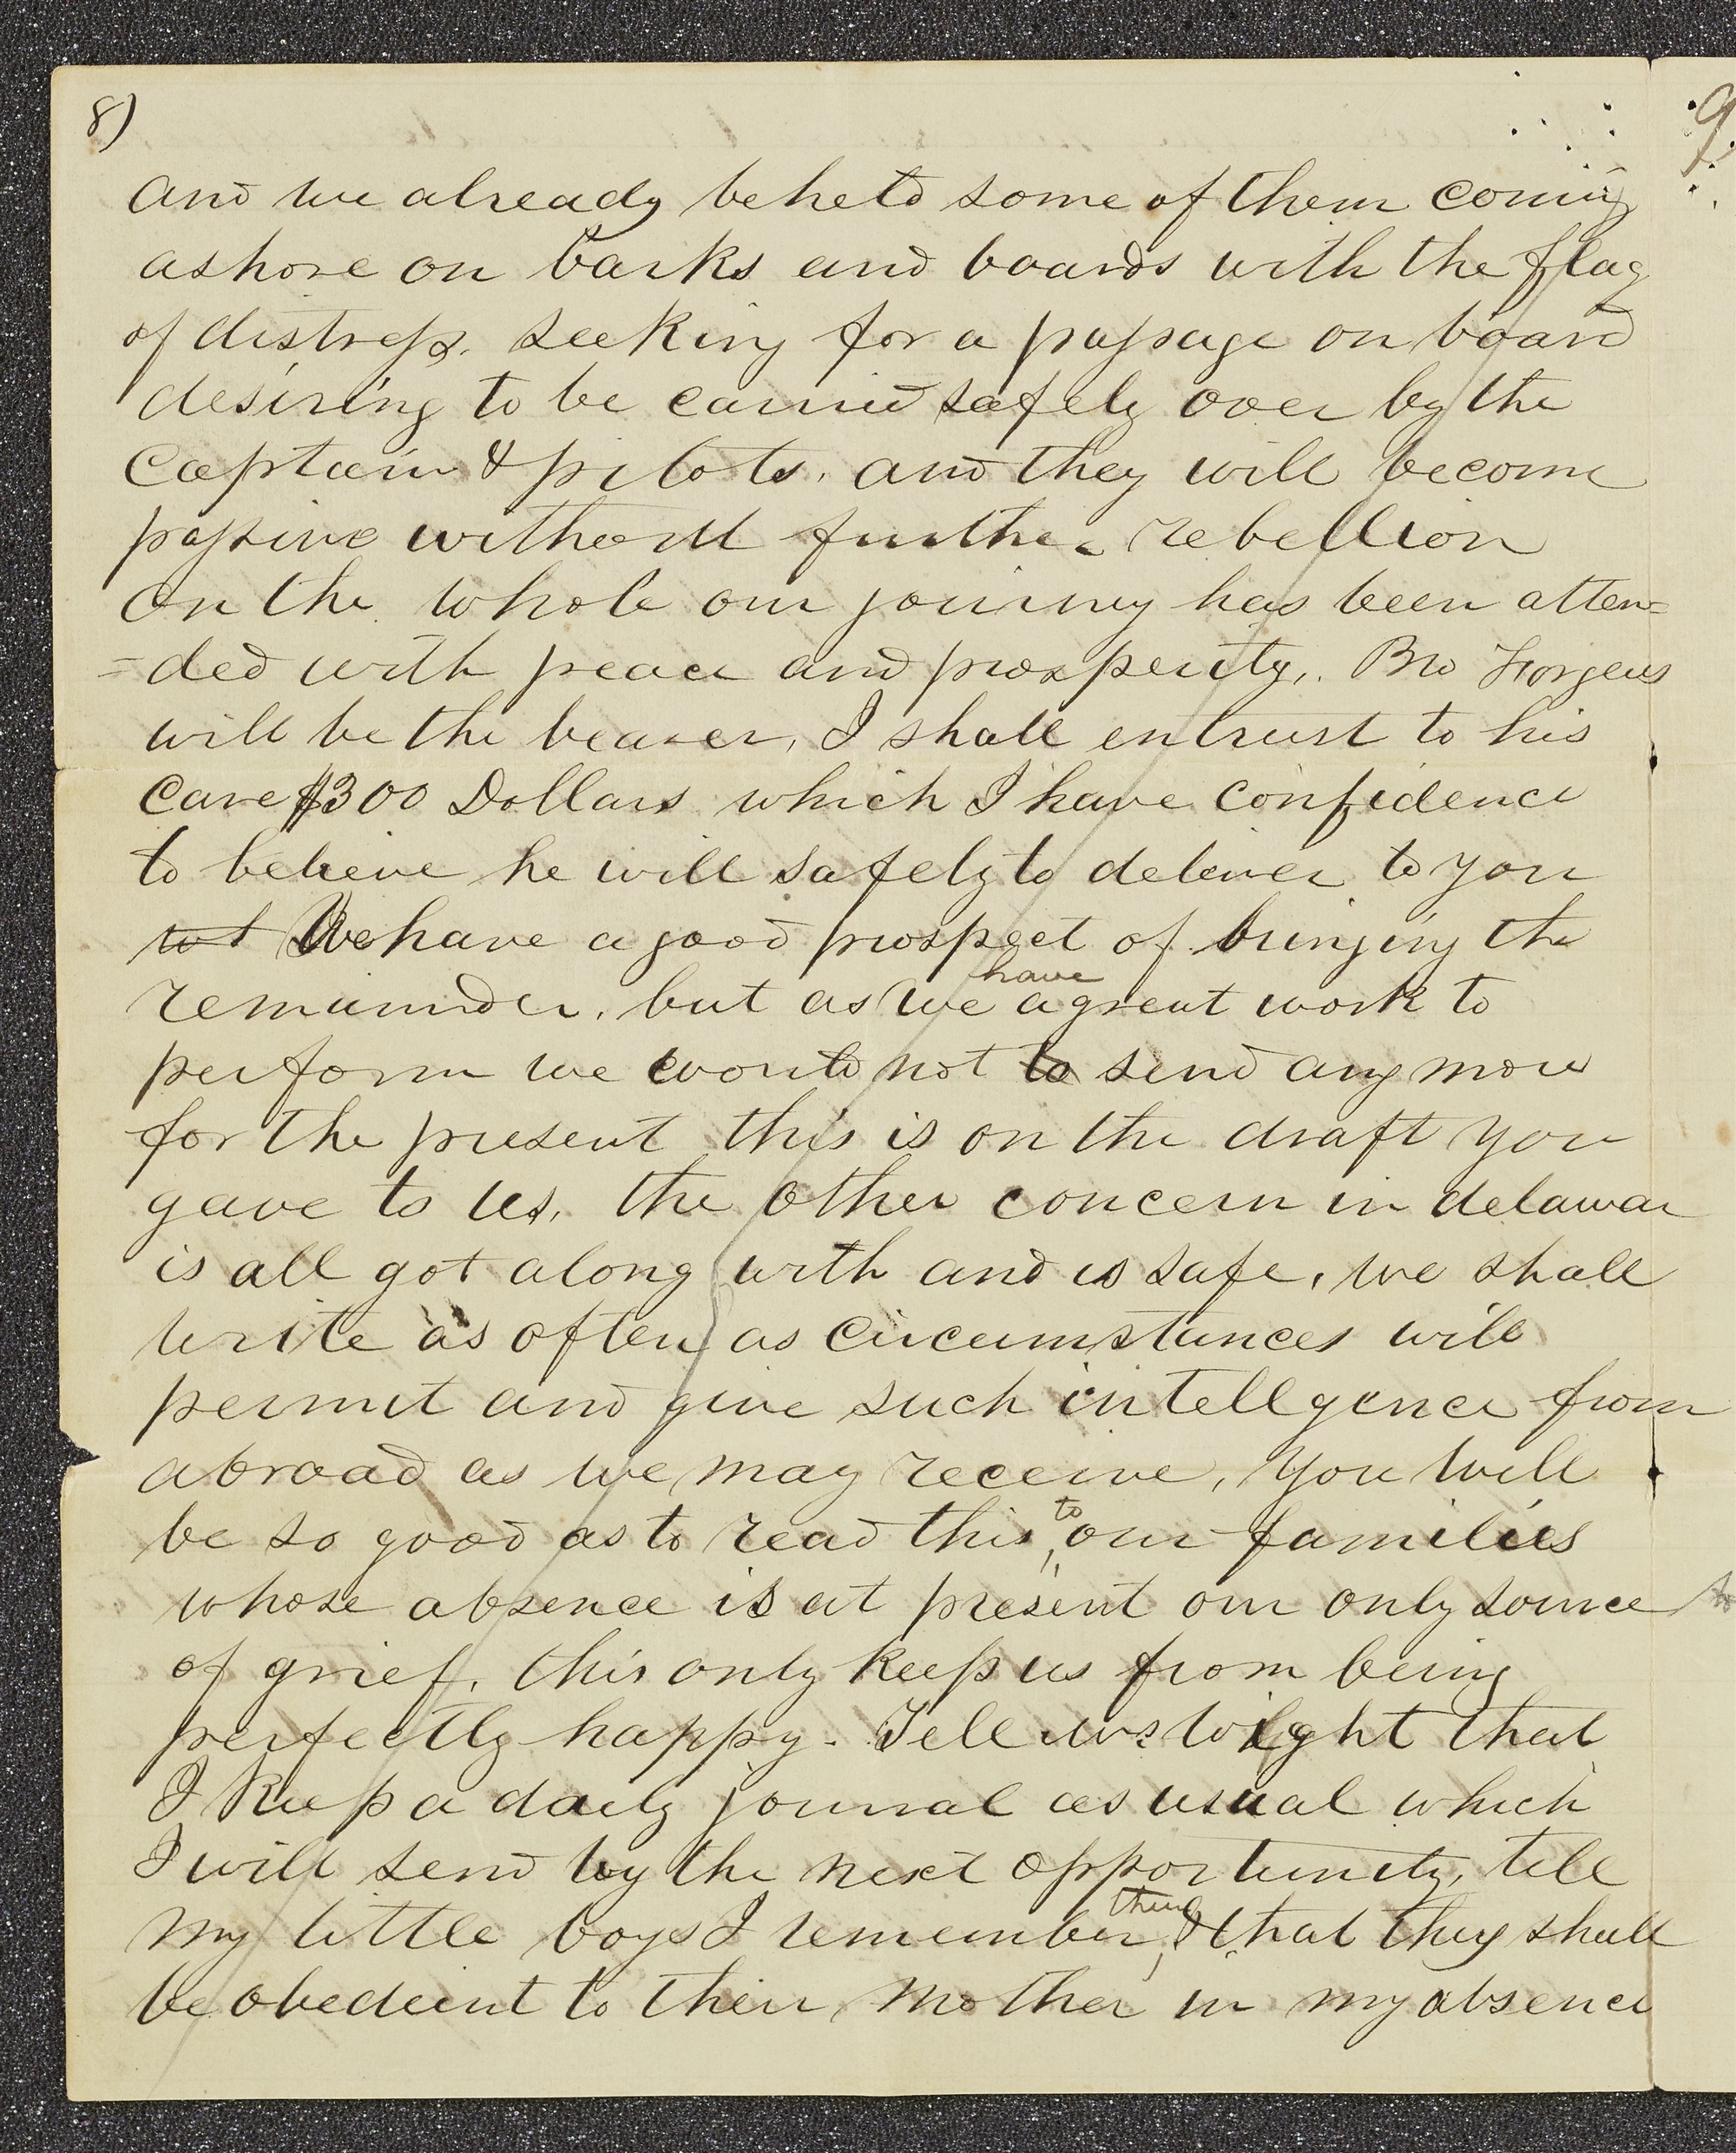 8)
9
and we already beheld some of them coming
ashore on barks and boards with the flag
of distress. seeking for a passage on board
desiring to be carried safely over by the
Captain & pilots. and they will become
passive without further rebellion
on the whole our journey has been atten=
=ded with peace and prosperity,. Bro
will be the bearer, I shall entrust to his
care $300 Dollars which I have confidence
to believe he will safely to deliver to you
We have a good prospect of bringing the
remainder. but as we have a great work to
perform we would not to send any more
for the present this is on the draft you
gave to us. the other concern in delawar
is all got along with and is safe, we shall
write as often as circumstances will
permit and give such intellgence from
abroad as we may receive, you will
be so good as to read this to our families
whose absence is at present our only source
of grief, this only keep us from being
perfectly happy. Tell wight that
I keep a daily journal as usual which
I will send by the next opportunity, tell
my little boys I remember them & that they shall
be obedient to their mother in my absence